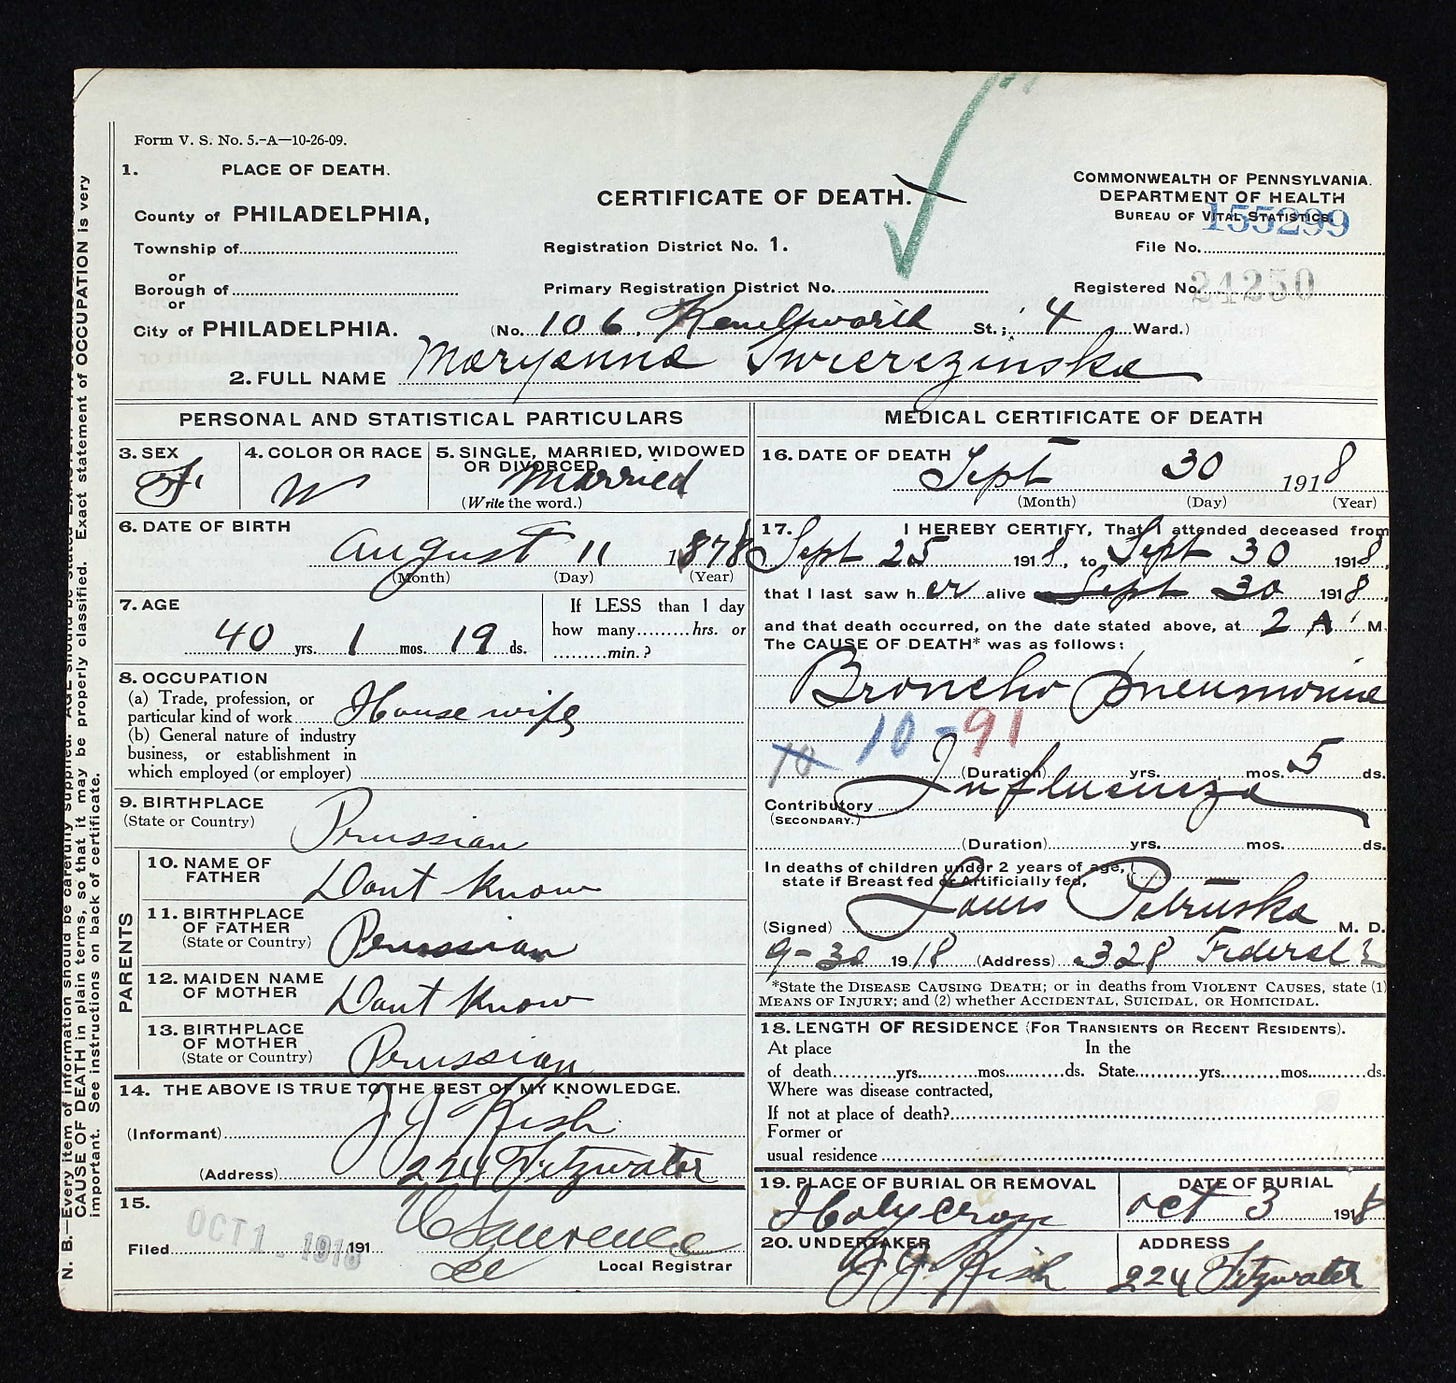 Form V. S. No. 5.-A—10-26-09.
1. PLACE OF DEATH.
County of PHILADELPHIA,
Township of
or
Borough of
or
City of PHILADELPHIA.
CERTIFICATE OF DEATH.
Registration District No. 1.
Primary Registration District No.
(No. 106. Kenilworth St.; 4 Ward.)
COMMONWEALTH OF PENNSYLVANIA.
DEPARTMENT OF HEALTH
BUREAU OF VITAL STATISTICS.
155299
File No.
Registered No. 24250
2. FULL NAME Maryanna Swierczinska
PERSONAL AND STATISTICAL PARTICULARS
3. SEX
F.
4. COLOR OR RACE
W
5. SINGLE, MARRIED, WIDOWED
OR DIVORCED
Married
(Write the word.)
6. DATE OF BIRTH
August 11 1878
(Month) (Day) (Year)
7. AGE
40 yrs. 1 mos. 19 ds.
If LESS than 1 day
how many hrs. or
min.?
8. OCCUPATION
(a) Trade, profession, or
particular kind of work House wife
(b) General nature of industry
business, or establishment in
which employed (or employer)
9. BIRTHPLACE
(State or Country)
Prussian
PARENTS
10. NAME OF
FATHER
Dont Know
11. BIRTHPLACE
OF FATHER
(State or Country)
Prussian
12. MAIDEN NAME
OF MOTHER
Dont Know
13. BIRTHPLACE
OF MOTHER
(State or Country)
Prussian
14. THE ABOVE IS TRUE TO THE BEST OF MY KNOWLEDGE.
(Informant) J J Kish
(Address) 224 Fitzwater
15.
Filed OCT 1 - 1918 191
Lawrence
Local Registrar
MEDICAL CERTIFICATE OF DEATH
16. DATE OF DEATH
Sept 30 1918
(Month) (Day) (Year)
17. I HEREBY CERTIFY, That I attended deceased from
Sept 25 1918, to Sept 30 1918,
that I last saw her alive Sept 30 1918,
and that death occurred, on the date stated above, at 2 A M.
The CAUSE OF DEATH* was as follows:
Broncho pneumonia
10 10-91
(Duration) yrs. mos. 5 ds.
Contributory Influenza
(SECONDARY.)
(Duration) yrs. mos. ds.
In deaths of children under 2 years of age,
state if Breast fed or Artificially fed,
(Signed) Louis Petruska M. D.
9-30 1918 (Address) 328 Federal
*State the DISEASE CAUSING DEATH; or in deaths from VIOLENT CAUSES, state (1)
MEANS OF INJURY; and (2) whether ACCIDENTAL, SUICIDAL, OR HOMICIDAL.
18. LENGTH OF RESIDENCE (FOR TRANSIENTS OR RECENT RESIDENTS).
At place In the
of death yrs. mos. ds. State yrs. mos. ds.
Where was disease contracted,
If not at place of death?
Former or
usual residence
19. PLACE OF BURIAL OR REMOVAL
Holy cross
DATE OF BURIAL
Oct 3 1918
20. UNDERTAKER
J J Kish
ADDRESS
224 Fitzwater
CAUSE OF DEATH in plain terms, so that it may be properly classified. Exact statement of OCCUPATION is very
important. See instructions on back of certificate.
N. B.—Every item of information should be carefully supplied. AGE should be stated